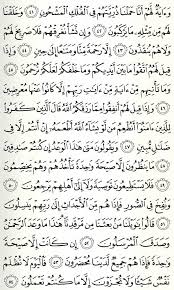 وَءَايَةٌ لَّهُمْ أَنَّا حَمَلْنَا ذُرِّيَّتَهُمْ فِى الْفُلْكِ الْمَشْحُونِ ٤١ وَخَلَقْنَا
لَهُم مِّن مِّثْلِهِ مَا يَرْكَبُونَ ٤٢ وَإِن نَّشَأْ نُغْرِقْهُمْ فَلَا صَرِيخَ لَهُمْ
وَلَا هُمْ يُنقَذُونَ ٤٣ إِلَّا رَحْمَةً مِّنَّا وَمَتَاعًا إِلَىٰ حِينٍ ٤٤ وَإِذَا
قِيلَ لَهُمُ اتَّقُوا مَا بَيْنَ أَيْدِيكُمْ وَمَا خَلْفَكُمْ لَعَلَّكُمْ تُرْحَمُونَ
٤٥ وَمَا تَأْتِيهِم مِّنْ ءَايَةٍ مِّنْ ءَايَاتِ رَبِّهِمْ إِلَّا كَانُوا عَنْهَا مُعْرِضِينَ
٤٦ وَإِذَا قِيلَ لَهُمْ أَنفِقُوا مِمَّا رَزَقَكُمُ اللَّهُ قَالَ الَّذِينَ كَفَرُوا
لِلَّذِينَ ءَامَنُوا أَنُطْعِمُ مَن لَّوْ يَشَاءُ اللَّهُ أَطْعَمَهُ إِنْ أَنتُمْ إِلَّا فِى
ضَلَالٍ مُّبِينٍ ٤٧ وَيَقُولُونَ مَتَىٰ هَٰذَا الْوَعْدُ إِن كُنتُمْ صَادِقِينَ
٤٨ مَا يَنظُرُونَ إِلَّا صَيْحَةً وَاحِدَةً تَأْخُذُهُمْ وَهُمْ يَخِصِّمُونَ
٤٩ فَلَا يَسْتَطِيعُونَ تَوْصِيَةً وَلَا إِلَىٰ أَهْلِهِمْ يَرْجِعُونَ ٥٠
وَنُفِخَ فِى الصُّورِ فَإِذَا هُم مِّنَ الْأَجْدَاثِ إِلَىٰ رَبِّهِمْ يَنسِلُونَ
٥١ قَالُوا يَاوَيْلَنَا مَن بَعَثَنَا مِن مَّرْقَدِنَا هَٰذَا مَا وَعَدَ الرَّحْمَٰنُ
وَصَدَقَ الْمُرْسَلُونَ ٥٢ إِن كَانَتْ إِلَّا صَيْحَةً
وَاحِدَةً فَإِذَا هُمْ جَمِيعٌ لَّدَيْنَا مُحْضَرُونَ ٥٣ فَالْيَوْمَ لَا تُظْلَمُ
نَفْسٌ شَيْئًا وَلَا تُجْزَوْنَ إِلَّا مَا كُنتُمْ تَعْمَلُونَ ٥٤